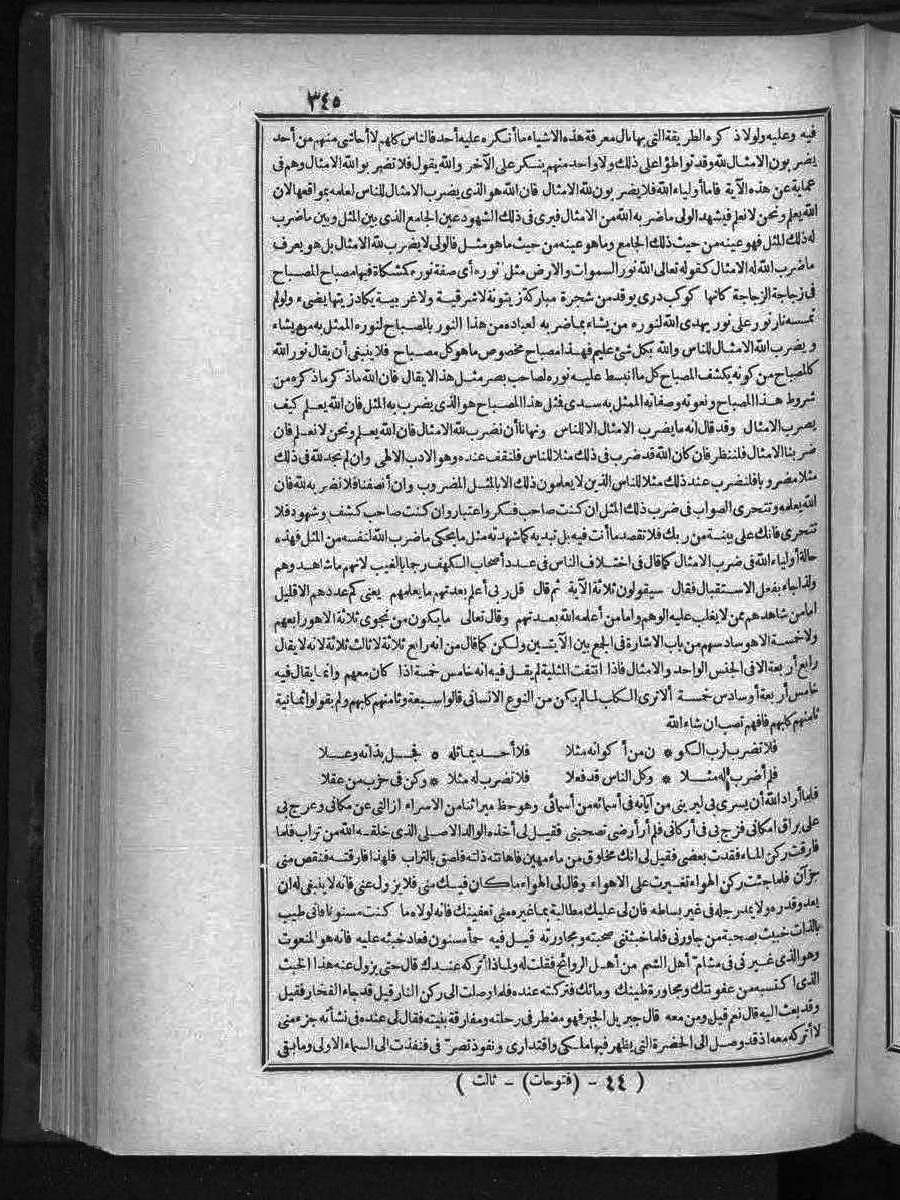 ٣٤٥
فيه وعليه ولولا ذكره الطريقة التي بها ينال معرفة هذه الاشياء ما أنكره عليه أحد فالناس كلهم لا أحاشى منهم من أحد
يضربون الامثال لله وقد تواطؤا على ذلك ولا واحد منهم ينكر على الآخر والله يقول فلا تضربوا لله الامثال وهم فى
عماية عن هذه الآية فاما أولياء الله فلا يضربون لله الامثال فان الله هو الذى يضرب الامثال للناس لعلمه بمواقعها لان
الله يعلم ونحن لا نعلم فيشهد الولى ما ضربه الله من الامثال فيرى فى ذلك الشهود عين الجامع الذى بين المثل وبين ما ضرب
له ذلك المثل فهو عينه من حيث ذلك الجامع وما هو عينه من حيث ما هو مثل فالولى لا يضرب لله الامثال بل هو يعرف
ما ضرب الله له الامثال كقوله تعالى الله نور السموات والارض مثل نوره أى صفة نوره كمشكاة فيها مصباح المصباح
فى زجاجة الزجاجة كانها كوكب درى يوقد من شجرة مباركة زيتونة لا شرقية ولا غربية يكاد زيتها يضىء ولو لم
تمسسه نار نور على نور يهدى الله لنوره من يشاء بما ضربه لعباده من هذا النور بالمصباح لنوره الممثل به من يشاء
ويضرب الله الامثال للناس والله بكل شئ عليم فهذا مصباح مخصوص ما هو كل مصباح فلا ينبغى أن يقال نور الله
كالمصباح من كونه يكشف المصباح كل ما انبسط عليه نوره لصاحب بصر مثل هذا لا يقال فان الله ما ذكر ما ذكره من
شروط هذا المصباح ونعوته وصفاته الممثل به سدى فمثل هذا المصباح هو الذى يضرب به المثل فان الله يعلم كيف
يضرب الامثال وقد قال انه ما يضرب الامثال الا للناس ونهانا أن نضرب لله الامثال فان الله يعلم ونحن لا نعلم فان
ضربنا الامثال فلننظر فان كان الله قد ضرب فى ذلك مثلا للناس فلنقف عنده وهو الادب الالهى وان لم نجد لله فى ذلك
مثلا مضروبا فلنضرب عند ذلك مثلا للناس الذين لا يعلمون ذلك الا بالمثل المضروب وان أنصفنا فلا نضربه لله فان
الله يعلمه ونتحرى الصواب فى ضرب ذلك المثل ان كنت صاحب فكر واعتبار وان كنت صاحب كشف وشهود فلا
تتحرى فانك على بينة من ربك فلا تقصد ما أنت فيه بل تبديه كما شهدته مثل ما يحكى ما ضرب الله لنفسه من المثل فهذه
حالة أولياء الله فى ضرب الامثال كما قال فى اختلاف الناس فى عدد أصحاب الكهف رجما بالغيب لانهم ما شاهدوهم
ولذا جاء بفعل الاستقبال فقال سيقولون ثلاثة الآية ثم قال قل ربى أعلم بعدتهم ما يعلمهم يعنى كم عددهم الا قليل
اما من شاهدهم ممن لا يغلب عليه الوهم واما من أعلمه الله بعدتهم وقال تعالى ما يكون من نجوى ثلاثة الا هو رابعهم
ولا خمسة الا هو سادسهم من باب الاشارة فى الجمع بين الآيتين ولكن كما قال من انه رابع ثلاثة لا ثالث ثلاثة لانه لا يقال
رابع أربعة الا فى الجنس الواحد والامثال فاذا انتفت المثلية لم يقل فيه انه خامس خمسة اذا كان معهم وانما يقال فيه
خامس أربعة أو سادس خمسة ألا ترى الكلب لما لم يكن من النوع الانسانى قالوا سبعة وثامنهم كلبهم ولم يقولوا ثمانية
ثامنهم كلبهم فافهم تصب ان شاء الله
فلا تضرب لرب الكو * ن من أكوانه مثلا فلا أحد يماثله * فجل بذاته وعلا
فلم أضرب له مثلا * وكل الناس قد فعلا فلا نضرب له مثلا * وكن فى حزب من عقلا
فلما أراد الله أن يسرى بى ليرينى من آياته فى أسمائه من أسمائى وهو حظ ميراثنا من الاسراء ازالنى عن مكانى وعرج بى
على براق امكانى فزج بى فى أركانى فلم أر أرضى تصحبنى فقيل لى أخذه الوالد الاصلى الذى خلقه الله من تراب فلما
فارقت ركن الماء فقدت بعضى فقيل لى انك مخلوق من ماء مهين فاهانته ذلته فلصق بالتراب فلهذا فارقته فنقص منى
جزآن فلما جئت ركن الهواء تغيرت على الاهواء وقال لى الهواء ما كان فيك منى فلا يزول عنى فانه لا ينبغى له ان
يعدو قدره ولا يمد رجله فى غير بساطه فان لى عليك مطالبة بما غيره منى تعفينك فانه لولاه ما كنت مسنونا فانى طيب
بالذات خبيث بصحبة من جاورنى فلما خبثتنى صحبته ومجاورته قيل فيه حمأ مسنون فعاد خبثه عليه فانه هو المنعوت
وهو الذى غيرنى فى مشام أهل الشم من أهل الروائح فقلت له ولماذا أتركه عندك قال حتى يزول عنه هذا الخبث
الذى اكتسبه من عفونتك ومجاورة طينك ومائك فتركته عنده فلما وصلت الى ركن النار قيل قد جاء الفخار فقيل
وقد بعث اليه قال نعم قيل ومن معه قال جبريل الجبر فهو مضطر فى رحلته ومفارقة بنيته فقال لى عنده فى نشأته جزء منى
لا أتركه معه اذ قد وصل الى الحضرة التى يظهر فيها ملكى واقتدارى ونفوذ تصرفى فنفذت الى السماء الاولى وما بقى
( ٤٤ - (فتوحات) - ثالث )